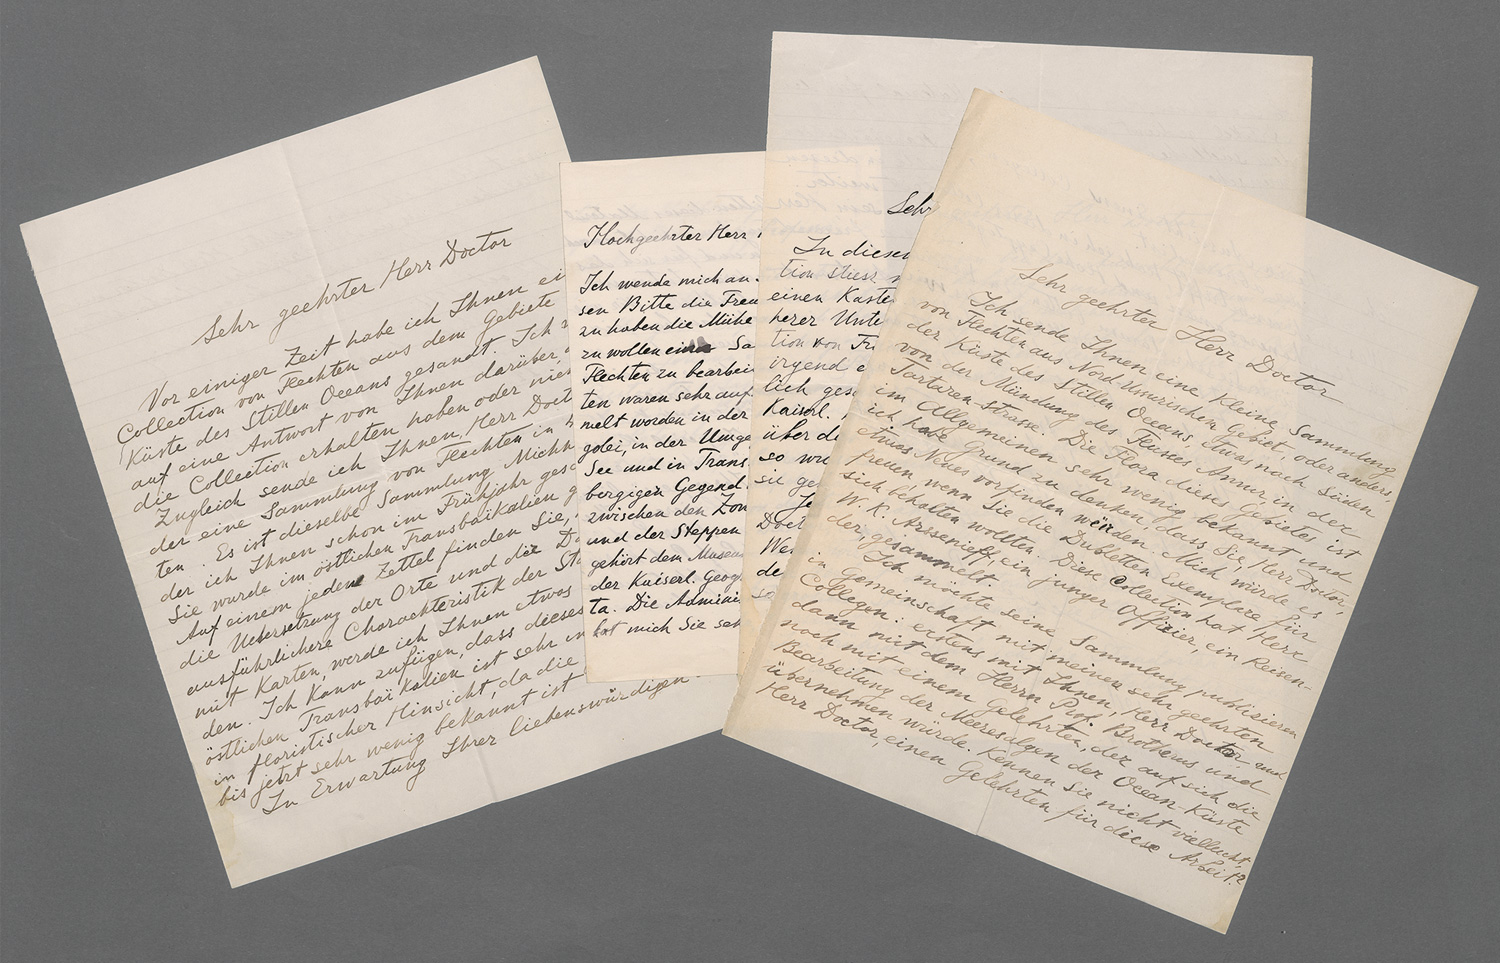 Sehr geehrter Herr Doctor
Vor einiger Zeit habe ich Ihnen ei
Collection von Flechten aus dem Gebiete
Küste des Stillen Oceans gesandt. Ich
auf eine Antwort von Ihnen darüber,
die Collection erhalten haben oder nich
Zugleich sende ich Ihnen, Herr Doct
der eine Sammlung von Flechten in
ten. Es ist dieselbe Sammlung Michn
der ich Ihnen schon im Frühjahr gesc
Sie wurde im östlichen Transbaïkalien g
Auf einem jeden Zettel finden Sie,
die Uebersetzung der Orte und die Da
ausführlichere Charakteristik der Sta
mit Karten, werde ich Ihnen etwas
den. Ich kann zufügen, dass dieses
östlichen Transbaïkalien ist sehr in
in floristischer Hinsicht, da die
bis jetzt sehr wenig bekannt ist
In Erwartung Ihrer liebenswürdigen
Hochgeehrter Herr
Ich wende mich an
sen Bitte die Freu
zu haben die Mühe
zu wollen eine Sa
Flechten zu bearbei
ten waren sehr auf
melt worden in der
golei, in der Umge
See und in Trans
bergigen Gegend
zwischen den Zon
und der Steppen
gehört dem Museu
der Kaiserl. Geog
ta. Die Admini
hat mich Sie seh
Sehr
In diesen
tion stiess
einen Kaste
herer Unte
tion von Fr
irgend e
lich ges
Kaiserl.
über di
so wu
sie ge
Je
Doct
We
de
so
Sehr geehrter Herr Doctor
Ich sende Ihnen eine kleine Sammlung
von Flechten aus Nord Ussurischen Gebiet, oder anders,
der Küste des Stillen Oceans, etwas nach Süden
von der Mündung des Flusses Amur, in der
Tartaren-Strasse. Die Flora dieses Gebietes ist
im Allgemeinen sehr wenig bekannt und
ich habe Grund zu denken, dass Sie, Herr Doctor,
etwas Neues vorfinden werden. Mich würde es
freuen, wenn Sie die Dubletten Exemplare für
sich behalten wollten. Diese Collection hat Herr
W. K. Arsenieff, ein junger Offizier, ein Reisen-
der, gesammelt.
Ich möchte seine Sammlung publizieren
in Gemeinschaft mit meinen sehr geehrten
Collegen: erstens mit Ihnen, Herr Doctor und
dann mit dem Herrn Prof. Brotherus und
noch mit einem Gelehrten, der auf sich die
Bearbeitung der Meeresalgen der Ocean-Küste
übernehmen würde. Kennen Sie nicht vielleicht,
Herr Doctor, einen Gelehrten für diese Arbeit?